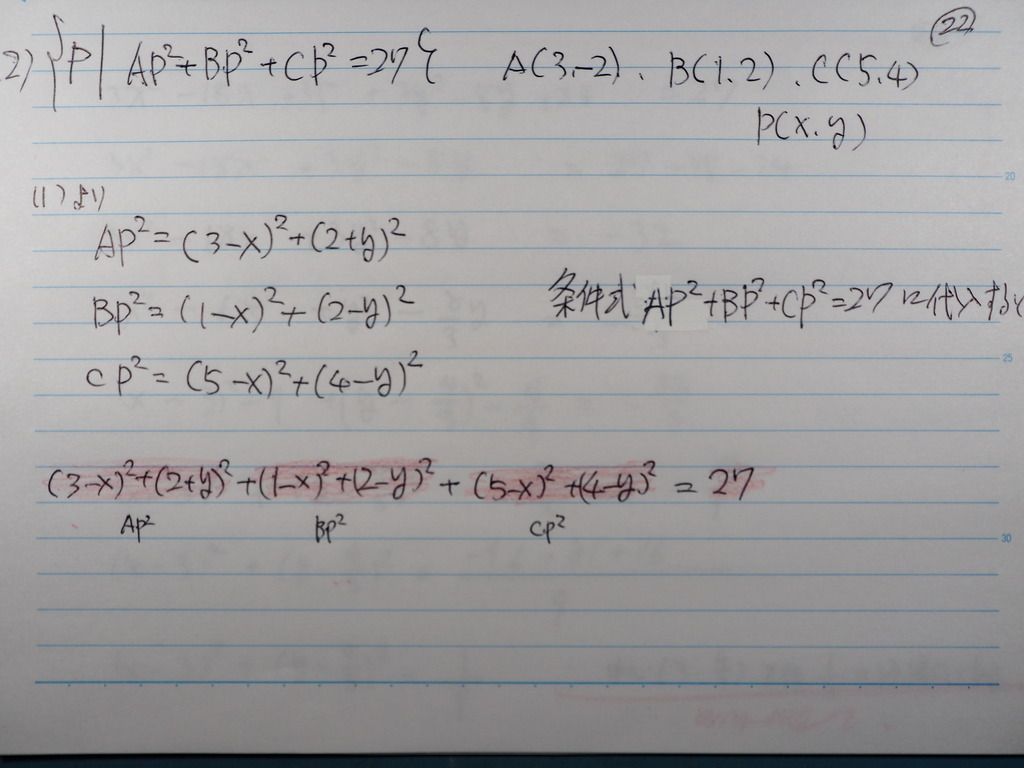 22
2) {P| AP²+BP²+CP²=27} A(3.-2). B(1.2). C(5.4)
P(x.y)
(1)より
AP²=(3-x)²+(2+y)²
BP²=(1-x)²+(2-y)² 条件式 AP²+BP²+CP²=27に代入すると
CP²=(5-x)²+(4-y)²
(3-x)²+(2+y)²+(1-x)²+(2-y)²+(5-x)²+(4-y)²=27
AP² BP² CP²
20
25
30